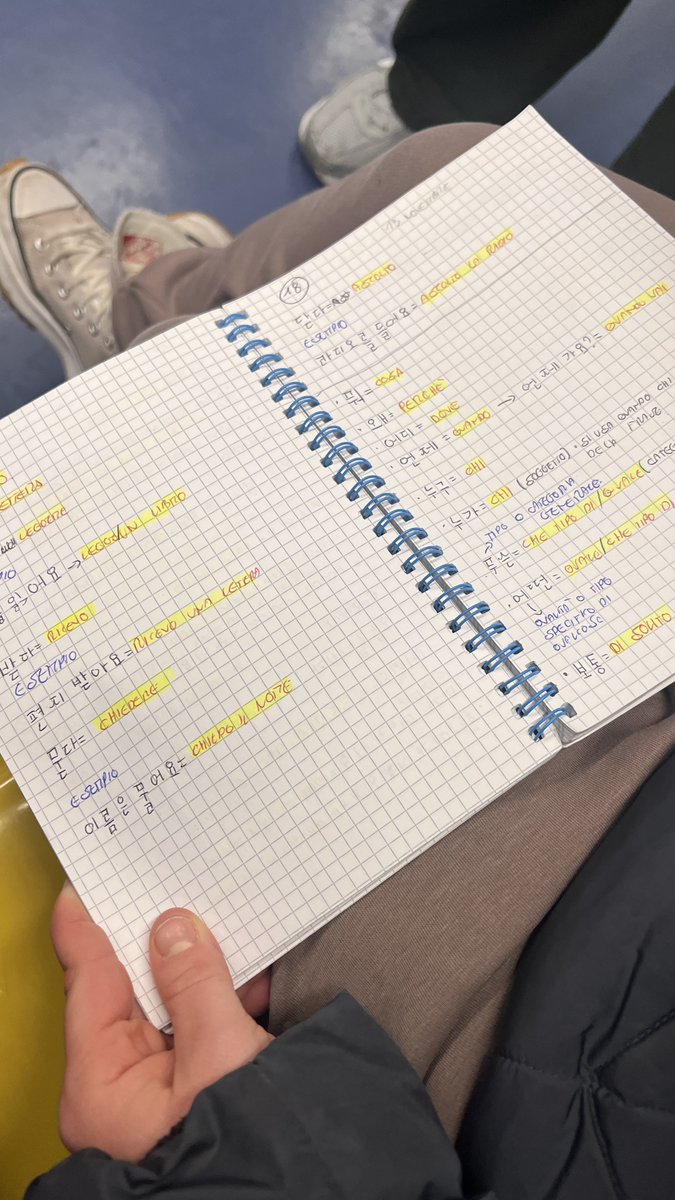 LEGGERE
읽어요 → LEGGO UN LIBRO
받다= RICEVO
ESEMPIO
편지 받아요=RICEVO UNA LETTERA
묻다= CHIEDERE
ESEMPIO
이름은 물어요= CHIEDO IL NOME
13 NOVEMBRE
18
ASCOLTO
ESEMPIO
라디오를 들어요= ASCOLTO LA RADIO
· 뭐= COSA
· 왜= PERCHÈ
어디= DOVE
· 언제= QUANDO → 언제 가요?= QUANDO VAI
· 누구= CHI
· 누가= CHI (SOGGETTO) · SI USA QUANDO CHI
DELLA FRASE
→ TIPO O CATEGORIA
GENERALE
· 무슨= CHE TIPO DI/QUALE
· 어떤= QUALE/CHE TIPO DI
↳ QUALITÀ O TIPO
SPECIFICO DI
QUALCOSA
· 보통= DI SOLITO